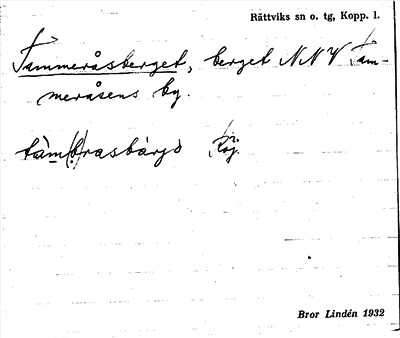 Rättviks sn o. tg, Kopp. l.
Tammeråsberget, berget NNV Tam-
meråsens by.
tàm(b)rasbàrjo
Bror Lindén 1932